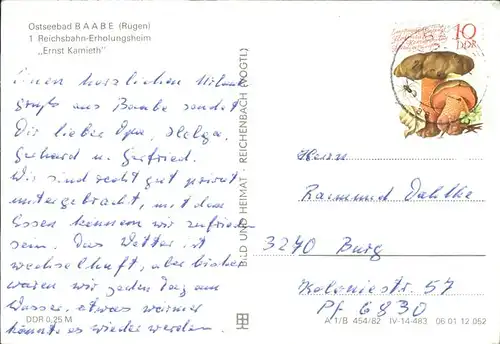 Ostseebad B A A B E (Rügen)
1 Reichsbahn-Erholungsheim
„Ernst Kamieth"
Einen herzlichen Urlaubs
gruß aus Baabe sendet
Dir lieber Opa, Helga,
Gerhard u. Gerfried.
Wir sind recht gut privat
untergebracht, mit dem
Essen können wir zufrieden
sein. Das Wetter ist
wechselhaft, aber bisher
waren wir jeden Tag am
Wasser, etwas wärmer
könnte es wieder werden.
DDR 0,25 M
BILD UND HEIMAT · REICHENBACH (VOGTL)
10
DDR
Herrn
Raimund Dahlke
3270 Burg
Koloniestr. 57
Pf 6830
A 1/B 454/82 IV-14-483 06 01 12 052